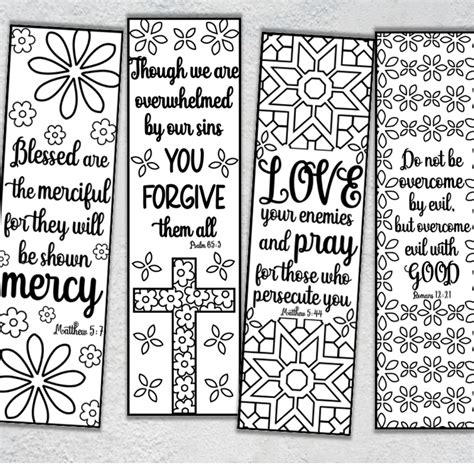 Blessed are
the merciful
for they will
be shown
mercy
Matthew 5:7
Though we are
overwhelmed
by our sins
YOU
FORGIVE
them all
Psalm 65:3
LOVE
your enemies
and pray
for those who
persecute you
Matthew 5:44
Do not be
overcome
by evil,
but overcome
evil with
GOOD
Romans 12:21